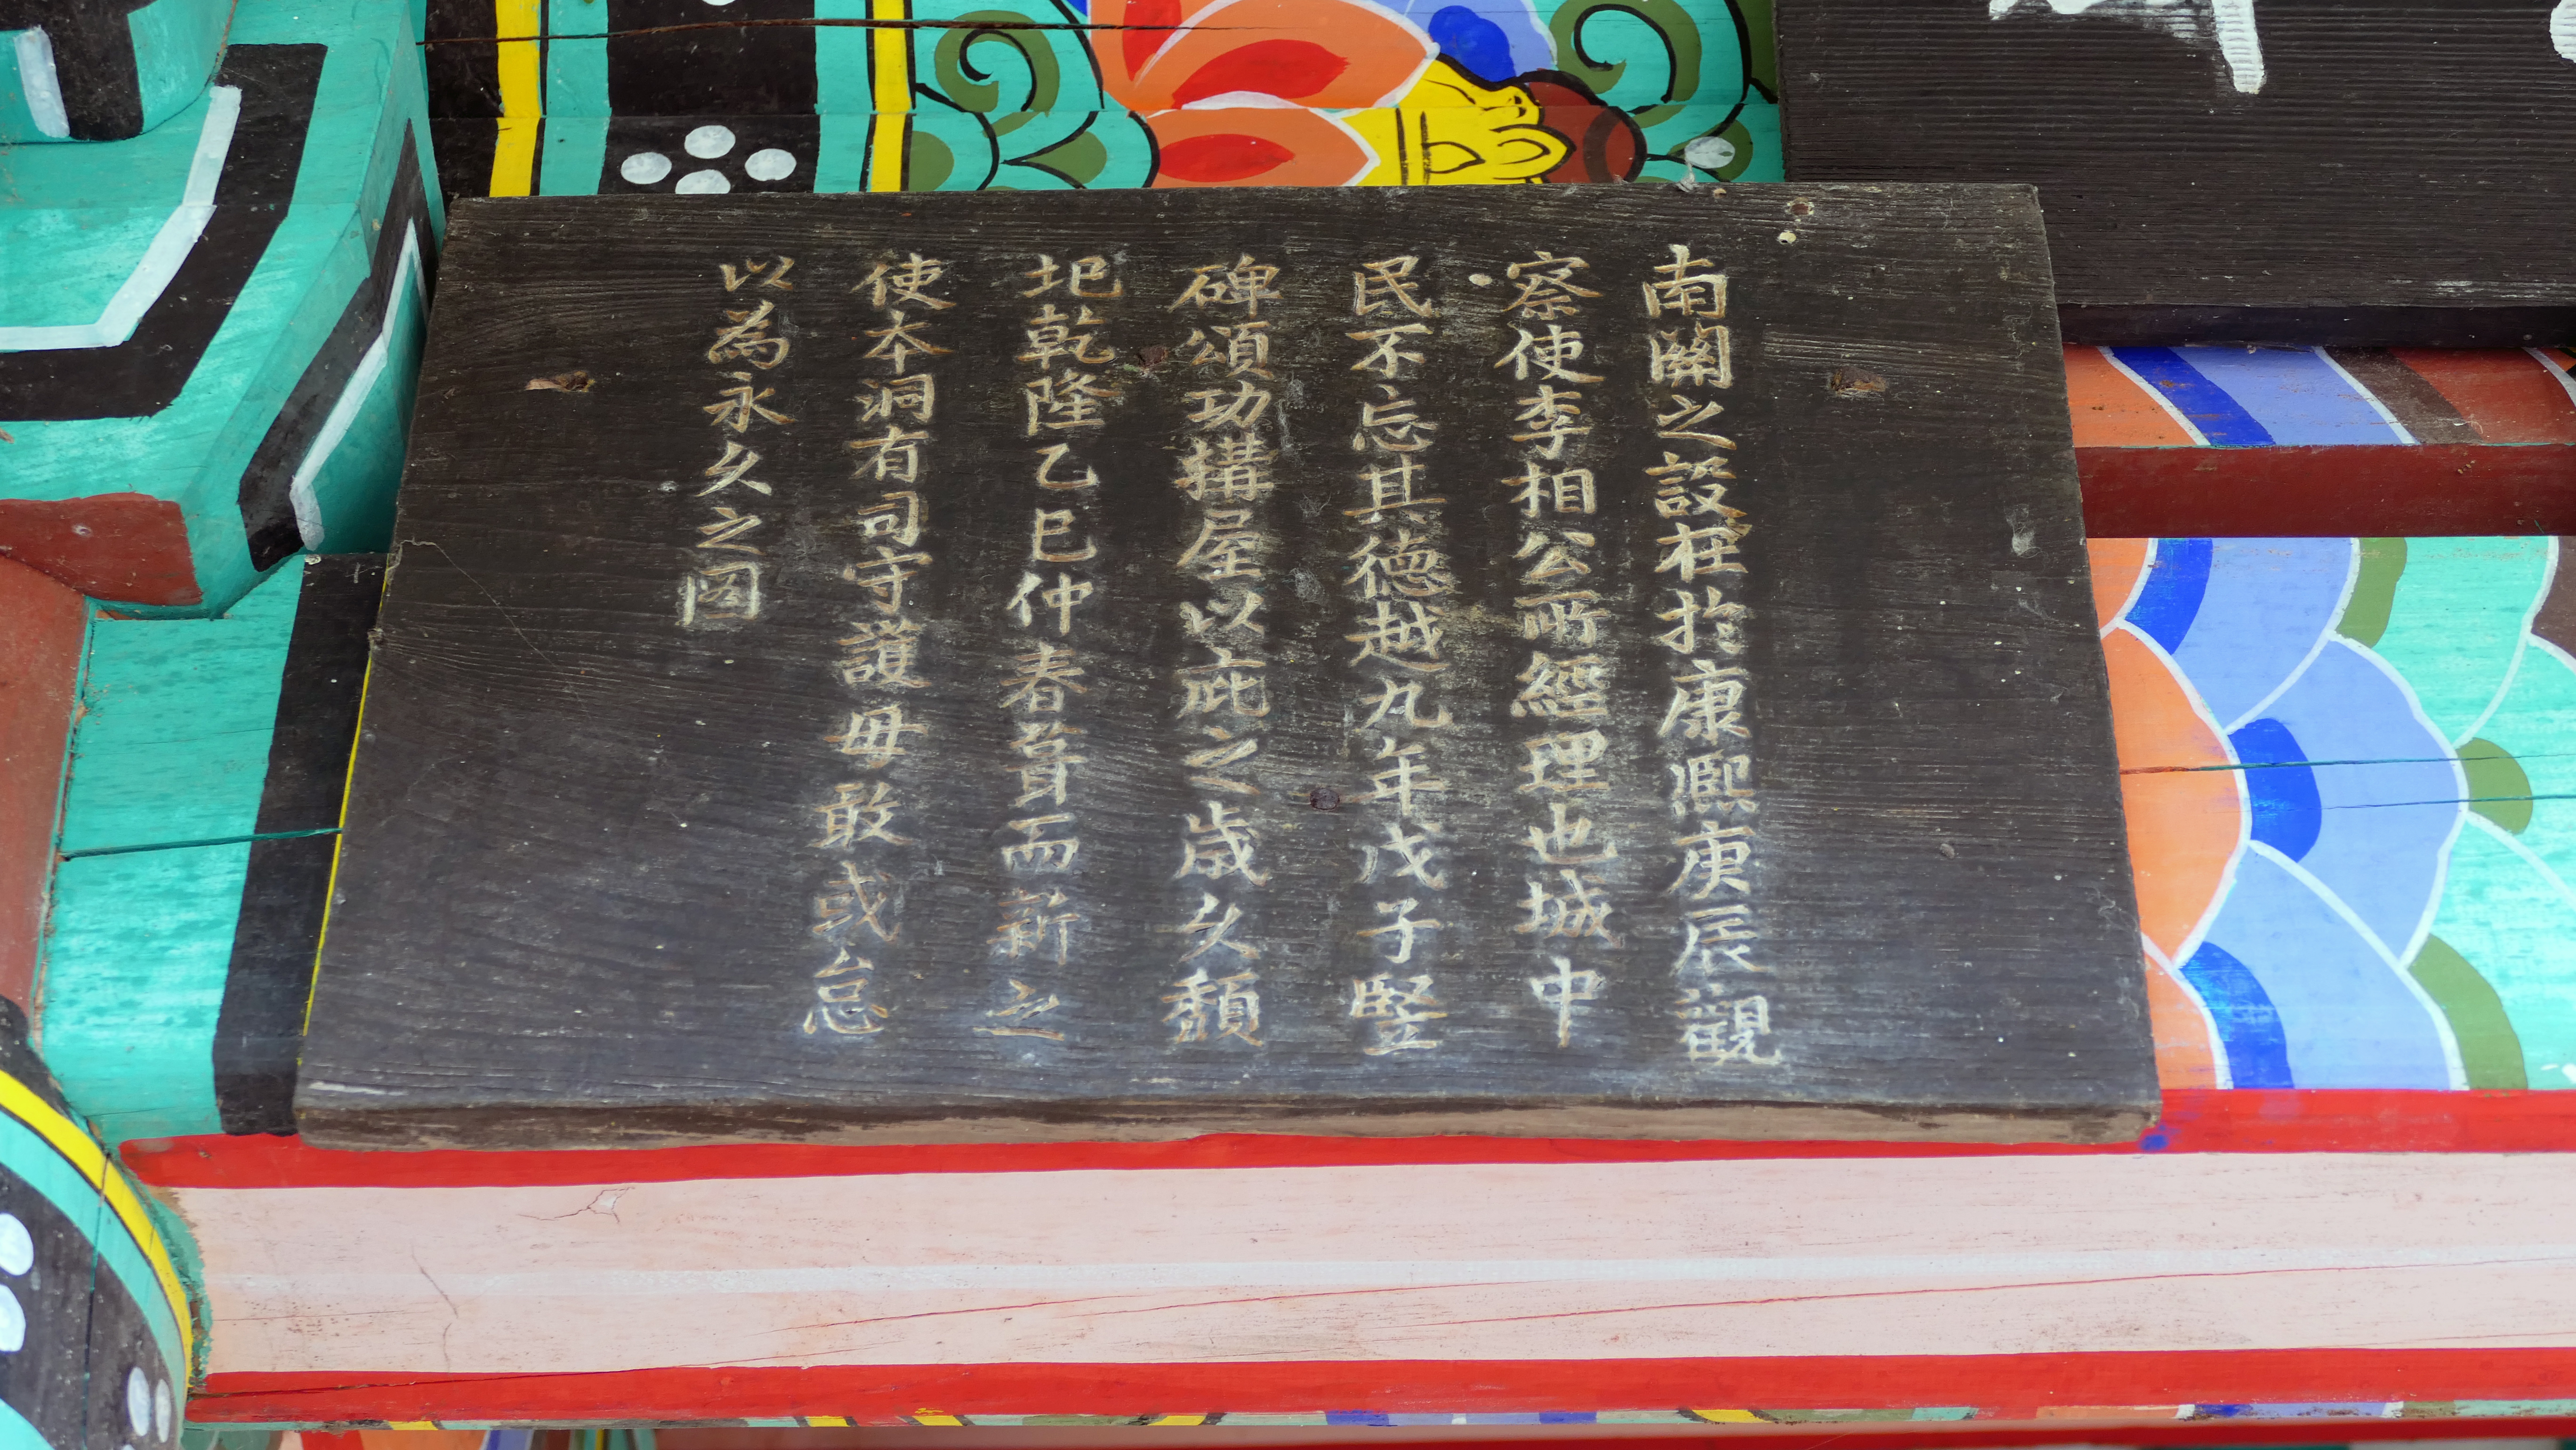 南關之設在於康熙庚辰觀
察使李相公所經理也城中
民不忘其德越九年戊子竪
碑頌功構屋以庇之歲久頹
圯乾隆乙巳仲春葺而新之
使本洞有司守護毋敢或怠
以為永久之圖